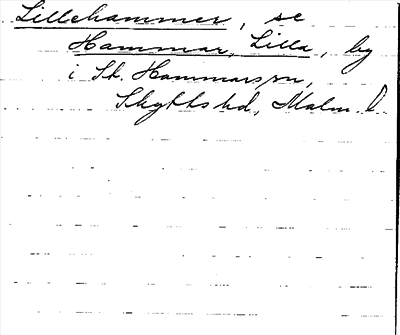 Lillehammer, se
Hammar, Lilla, by
i St. Hammars sn,
Skytts hd, Malm. l.